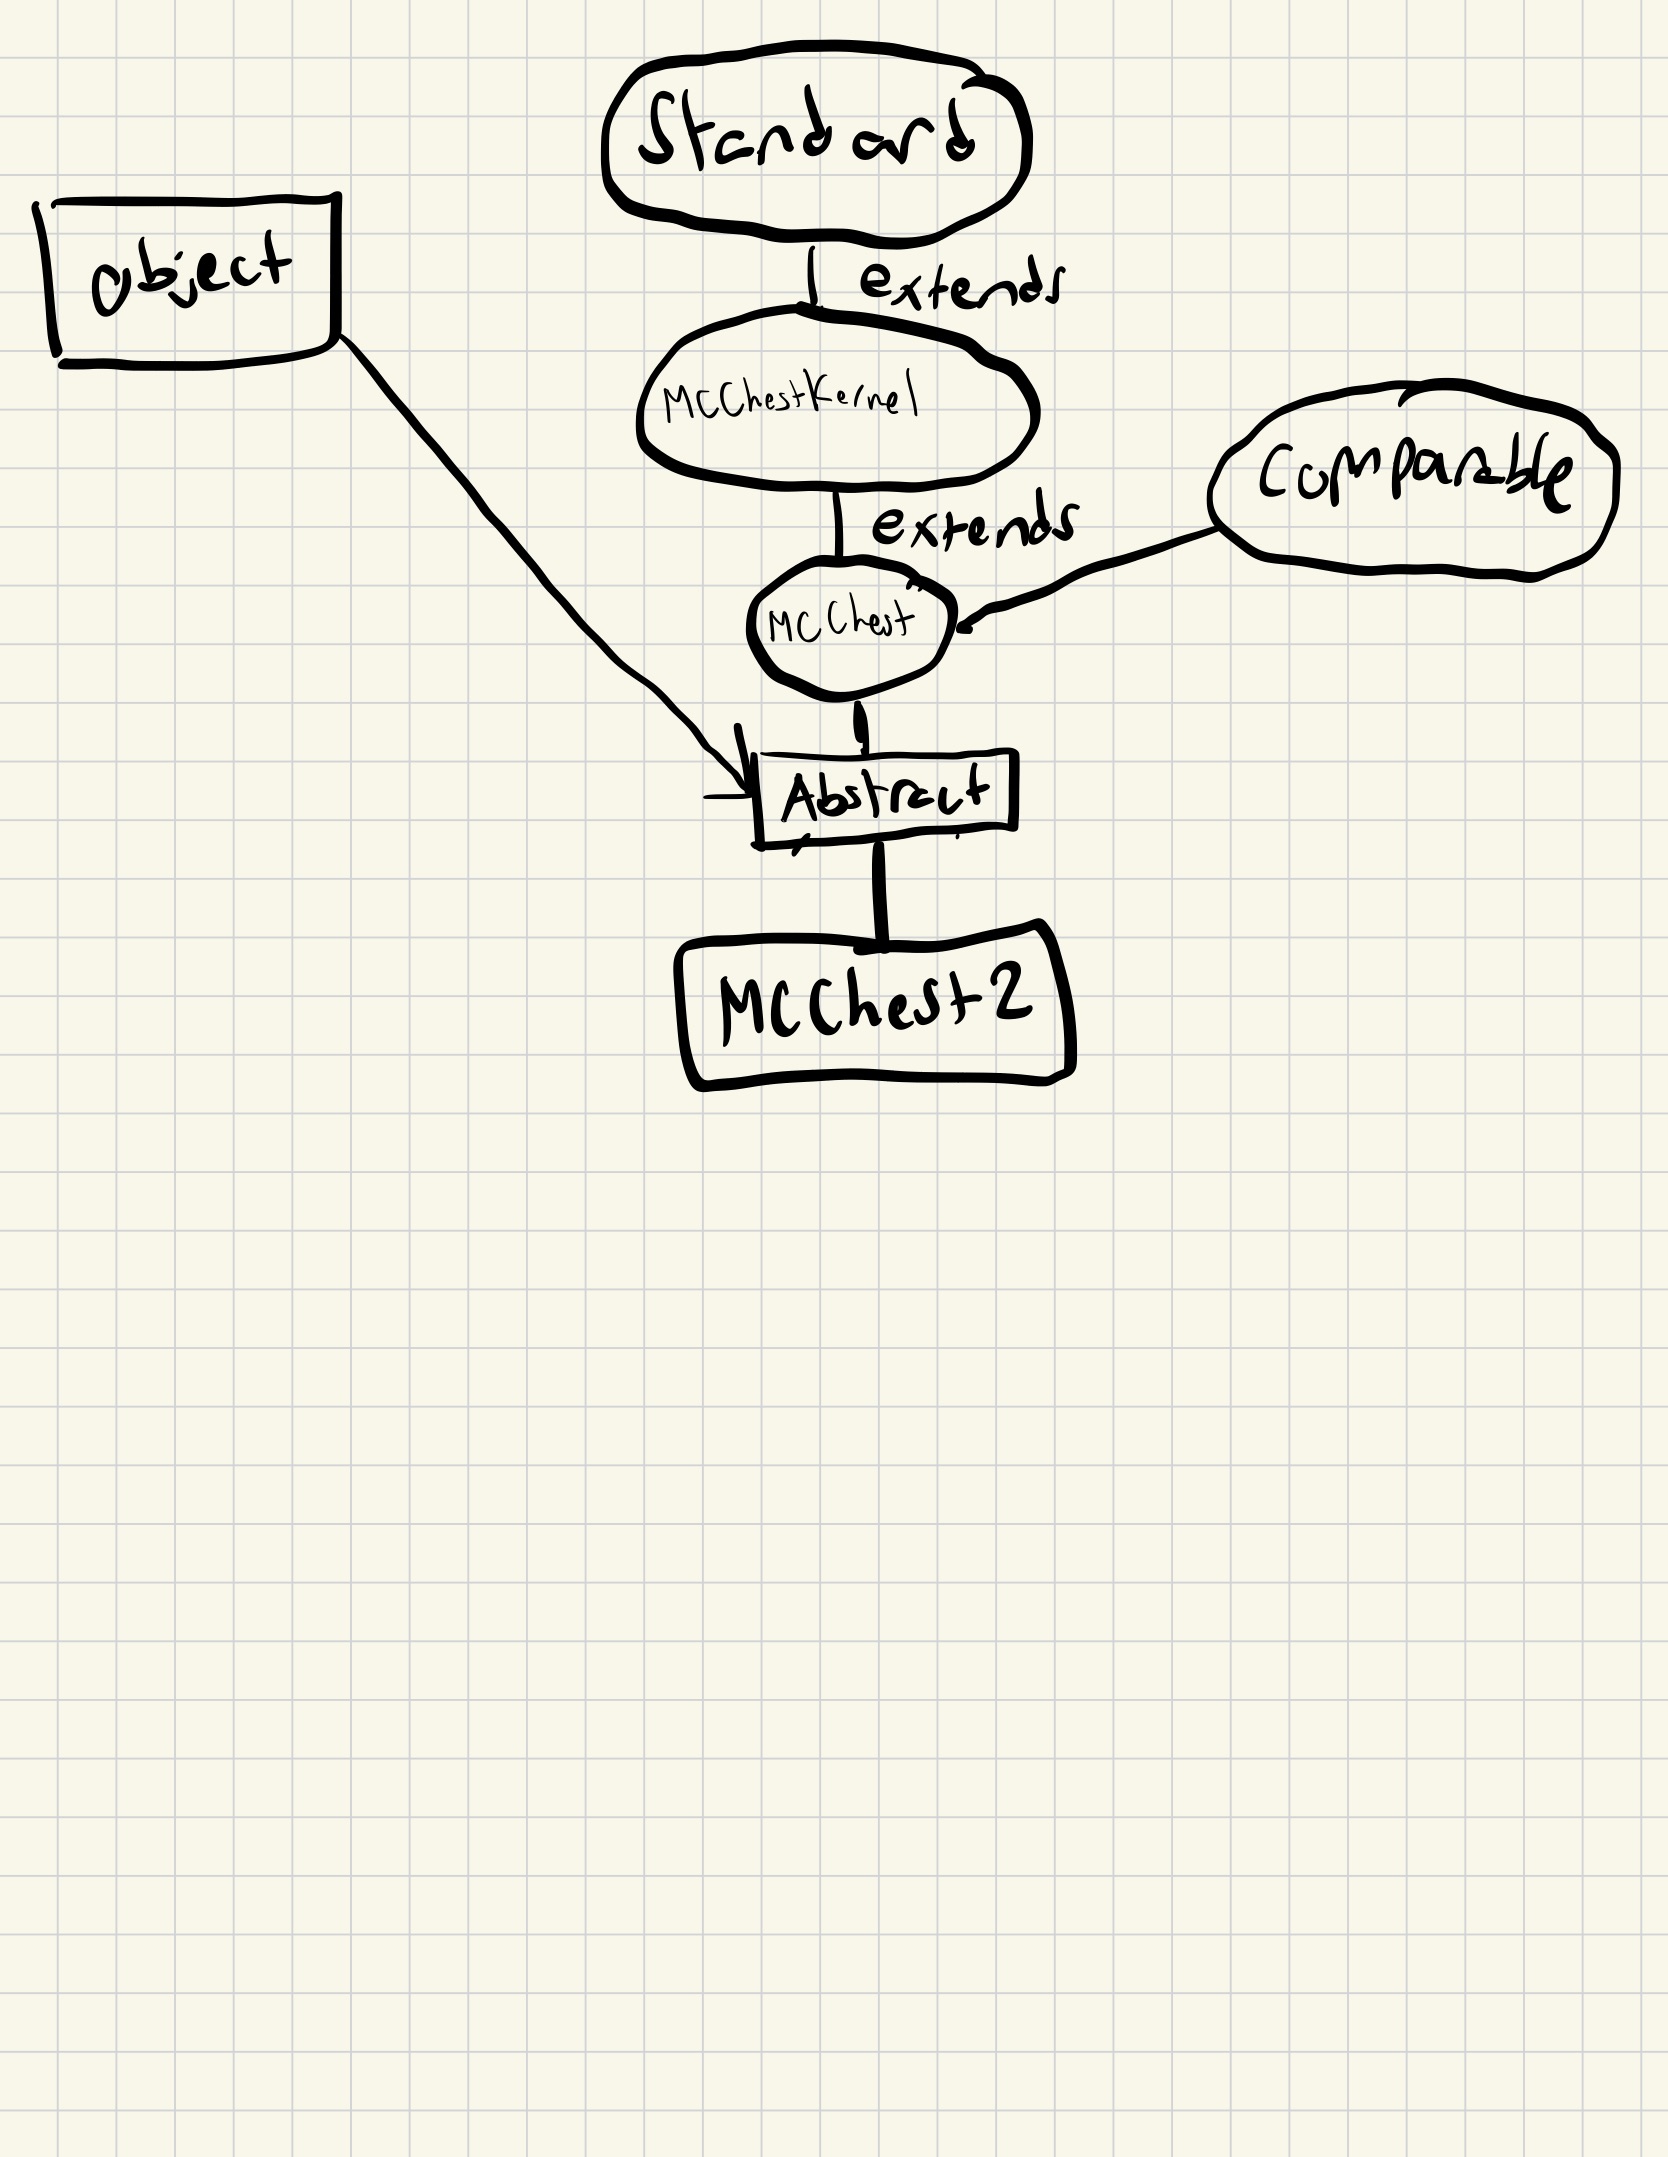 Standard
object
extends
MCChestKernel
Comparable
extends
MCChest
Abstract
MCChest2